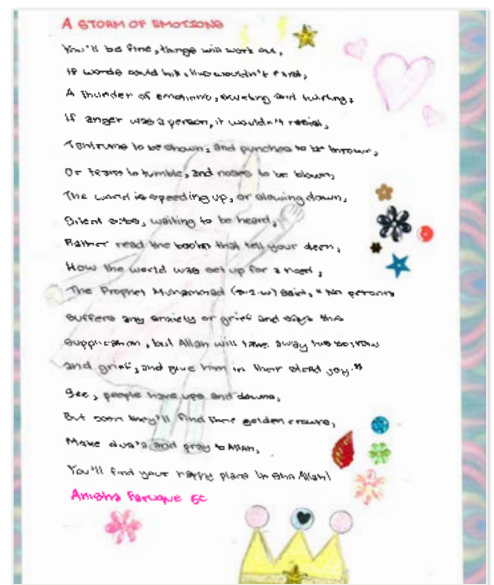 A STORM OF EMOTIONS
You'll be fine, things will work out,
If words could kill, lives wouldn't exist,
A thunder of emotions, swirling and twirling,
If anger was a person, it wouldn't resist,
Tantrums to be shown, and punches to be thrown,
Or tears to tumble, and noses to be blown,
The world is speeding up, or slowing down,
Silent sobs, waiting to be heard,
Rather read the books that tell your deen,
How the world was set up for a need,
The Prophet Muhammad (s.a.w) said, "No person
suffers any anxiety or grief and says this
supplication, but Allah will take away his sorrow
and grief, and give him in their stead joy."
See, people have ups and downs,
But soon they'll find their golden crowns,
Make dua's and pray to Allah,
You'll find your happy place in sha Allah!
Anisha Faruque 6C